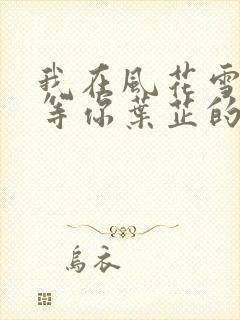 我在風花雪
等你葉芷的
烏衣